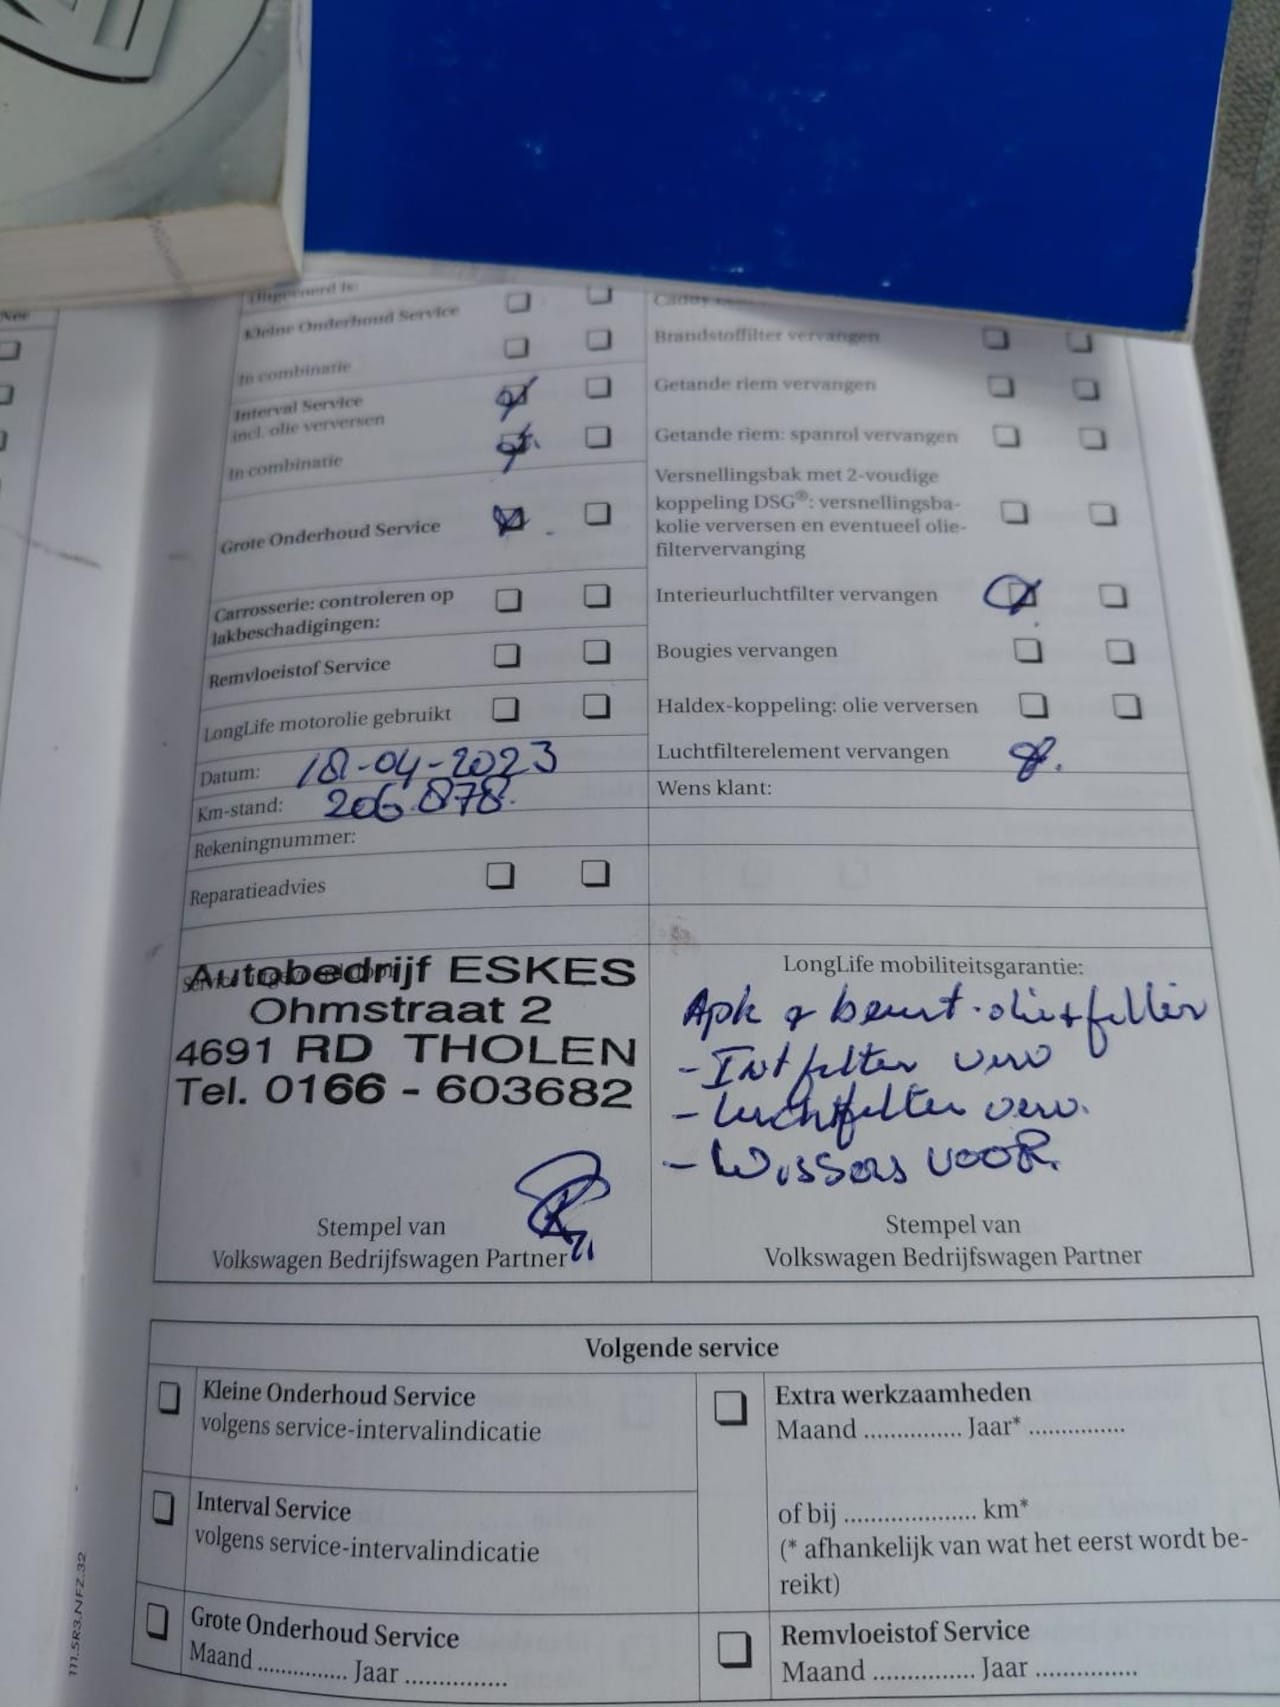 Kleine Onderhoud Service
In combinatie
Interval Service
incl. olie verversen
In combinatie
Grote Onderhoud Service
Carrosserie: controleren op
lakbeschadigingen:
Remvloeistof Service
LongLife motorolie gebruikt
Datum: 18-04-2023
Km-stand: 206.878.
Rekeningnummer:
Reparatieadvies
Brandstoffilter vervangen
Getande riem vervangen
Getande riem: spanrol vervangen
Versnellingsbak met 2-voudige
koppeling DSG®: versnellingsba-
kolie verversen en eventueel olie-
filtervervanging
Interieurluchtfilter vervangen
Bougies vervangen
Haldex-koppeling: olie verversen
Luchtfilterelement vervangen
Wens klant:
Autobedrijf ESKES
Ohmstraat 2
4691 RD THOLEN
Tel. 0166 - 603682
Stempel van
Volkswagen Bedrijfswagen Partner
LongLife mobiliteitsgarantie:
Apk & beurt. olie+filter
- Int filter verv
- Luchtfilter verv.
- Wissers VOOR.
Stempel van
Volkswagen Bedrijfswagen Partner
Volgende service
Kleine Onderhoud Service
volgens service-intervalindicatie
Interval Service
volgens service-intervalindicatie
Grote Onderhoud Service
Maand ............... Jaar ...............
Extra werkzaamheden
Maand ............... Jaar* ...............
of bij .................... km*
(* afhankelijk van wat het eerst wordt be-
reikt)
Remvloeistof Service
Maand ............... Jaar ...............
111.5R3.NFZ.32